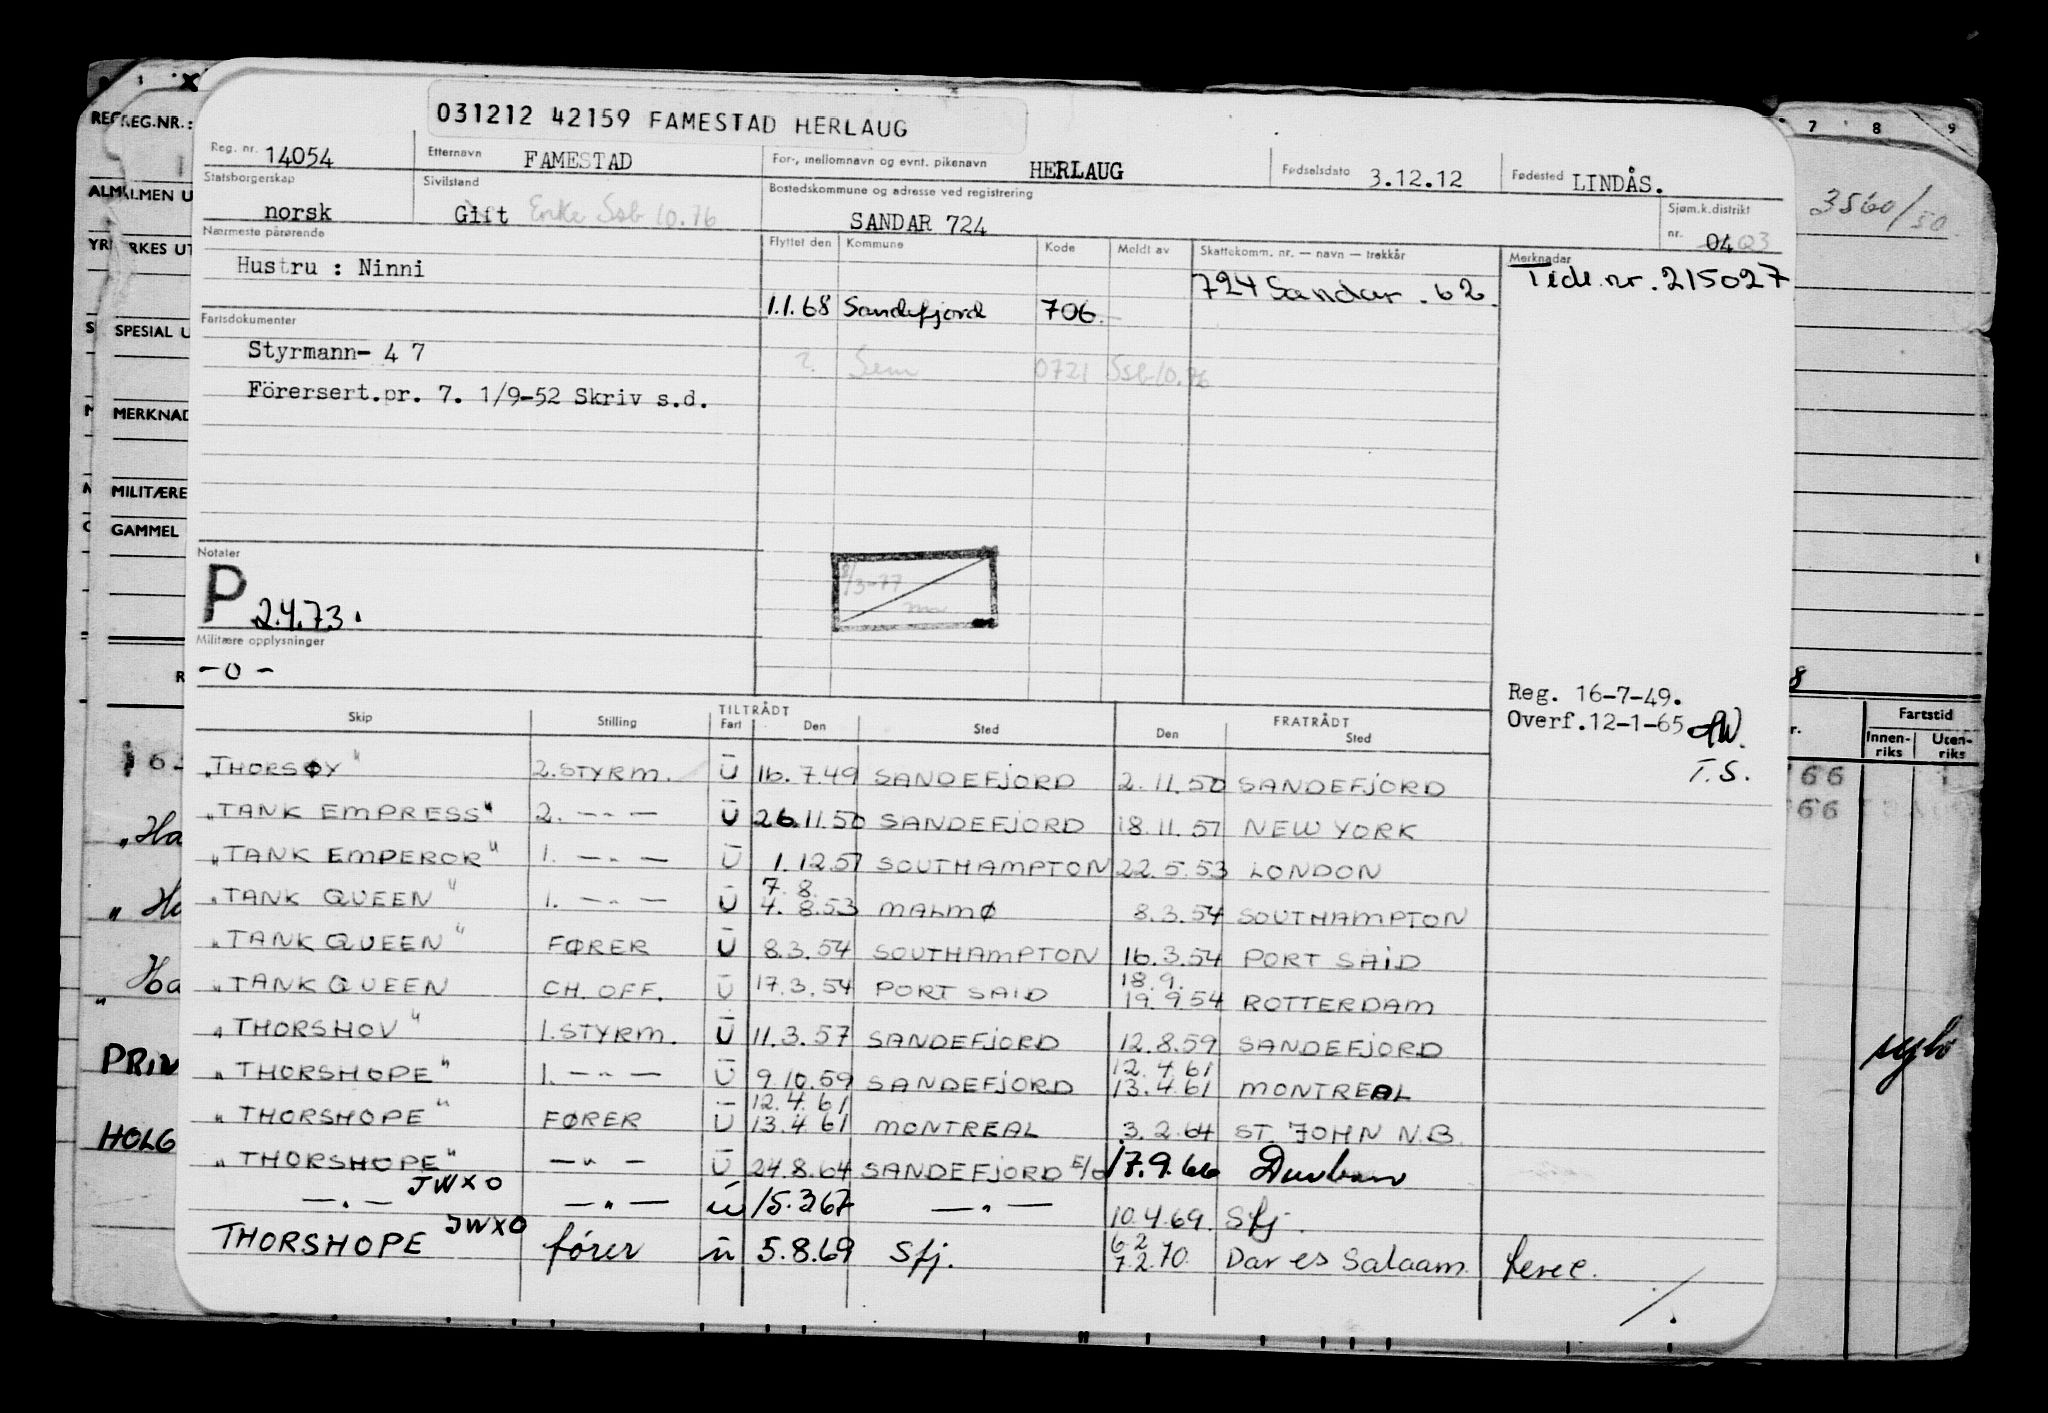 031212 42159 FAMESTAD HERLAUG
Reg. nr. 14054 Etternavn FAMESTAD For-, mellomnavn og evnt. pikenavn HERLAUG Fødselsdato 3.12.12 Fødested LINDÅS.
Statsborgerskap norsk Sivilstand Gift Enke Ssb 10.76 Bostedskommune og adresse ved registrering SANDAR 724 Sjøm.k.distrikt nr. 04 03
3560/50
Nærmeste pårørende Flyttet den Kommune Kode Meldt av Skattekomm. nr. — navn — trekkår Merknader
Hustru : Ninni 724 Sandar . 62. Tidl. nr. 215027
1.1.68 Sandefjord 706.
Fartsdokumenter
Styrmann- 4 7 ? Sem 0721 Ssb 10.76
Förersert.pr. 7. 1/9-52 Skriv s.d.
Notater
P 2.4.73.
8/3-77
Militære opplysninger
- o -
Reg. 16-7-49.
Overf.12-1-65 AW.
T.S.
Skip Stilling TILTRÅDT Fart Den Sted FRATRÅDT Den Sted
"THORSØY" 2.STYRM. U 16.7.49 SANDEFJORD 2.11.50 SANDEFJORD
"TANK EMPRESS" 2. —"— U 26.11.50 SANDEFJORD 18.11.51 NEW YORK
"TANK EMPEROR" 1. —"— U 1.12.51 SOUTHAMPTON 22.5.53 LONDON
"TANK QUEEN" 1. —"— U 7.8. 4.8.53 MALMØ 8.3.54 SOUTHAMPTON
"TANK QUEEN" FØRER U 8.3.54 SOUTHAMPTON 16.3.54 PORT SAID
"TANK QUEEN CH. OFF. U 17.3.54 PORT SAID 18.9. 19.9.54 ROTTERDAM
"THORSHOV" 1.STYRM. U 11.3.57 SANDEFJORD 12.8.59 SANDEFJORD
"THORSHOPE" 1. —"— U 9.10.59 SANDEFJORD 12.4.61 13.4.61 MONTREAL
"THORSHOPE" FØRER U 12.4.61 13.4.61 MONTREAL 3.2.64 ST. JOHN N.B.
"THORSHOPE" —"— U 24.8.64 SANDEFJORD E/O 17.9.66 Durban
—"— JWXO —"— u 15.3.67 —"— 10.4.69. Sfj.
THORSHOPE JWXO fører u 5.8.69 Sfj. 6.2. 7.2.70. Dar es Salaam ferie.
REG.NR.:
SPESIAL U
MERKNAD
MILITÆRE
GAMMEL
"Ha
PRIN
HOLG
7 8 9
Fartstid
Innen-riks Uten-riks
66
66